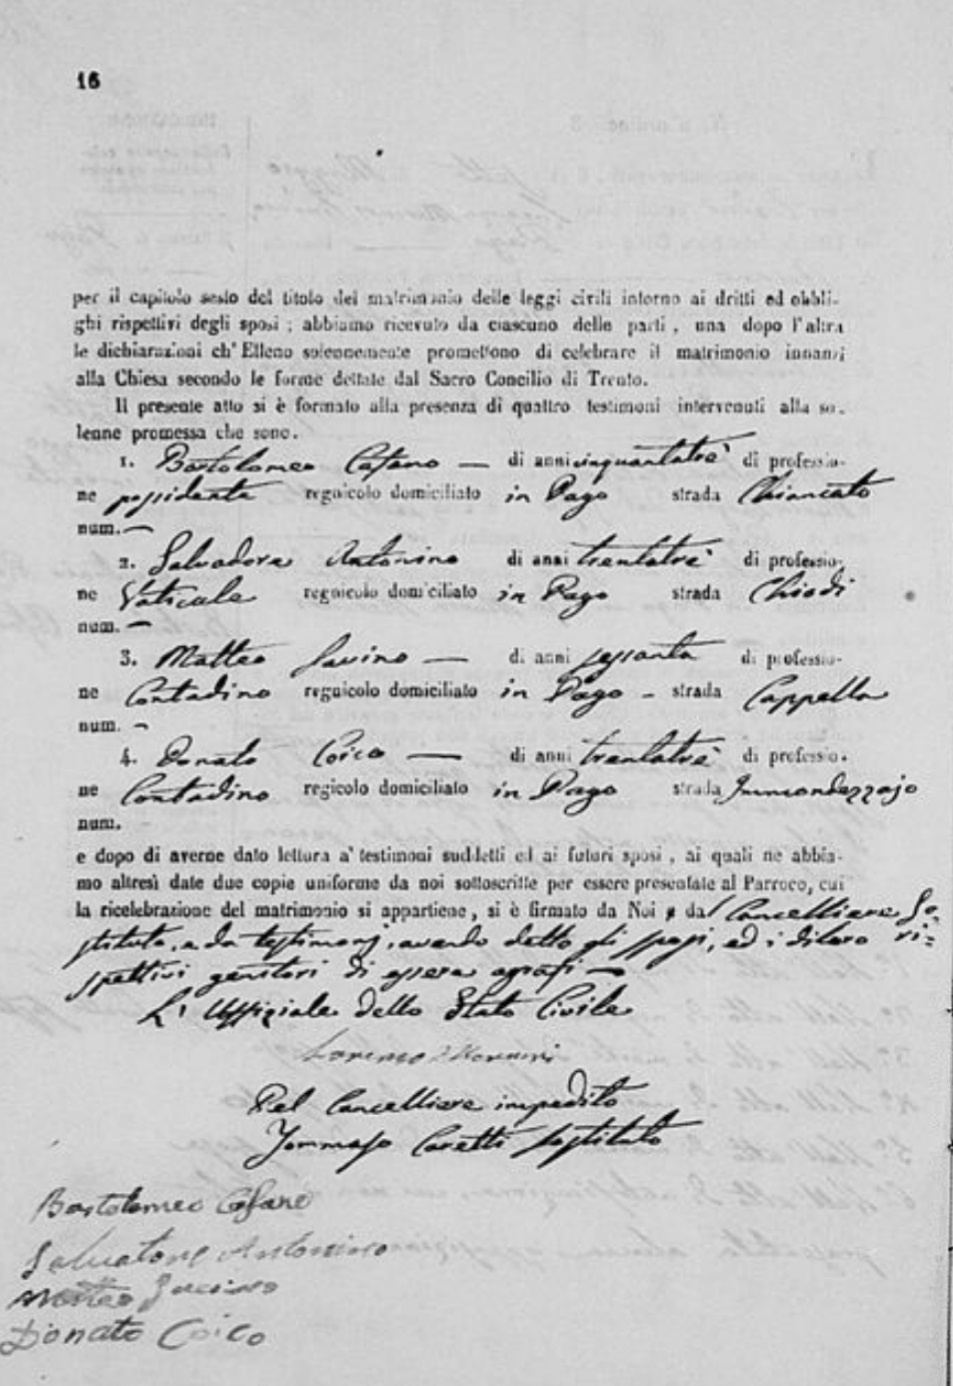 16
per il capitolo sesto del titolo del matrimonio delle leggi civili intorno ai dritti ed obbli-
ghi rispettivi degli sposi ; abbiamo ricevuto da ciascuno delle parti , una dopo l'altra
le dichiarazioni ch'Elleno solennemente promettono di celebrare il matrimonio innanzi
alla Chiesa secondo le forme dettate dal Sacro Concilio di Trento.
Il presente atto si è formato alla presenza di quattro testimoni intervenuti alla so-
lenne promessa che sono.
1. Bartolomeo Cefano — di anni cinquantatrè di professio-
ne possidente regnicolo domiciliato in Pago strada Chiancato
num. —
2. Salvadore Antonino di anni trentatrè di professio-
ne Vaticale regnicolo domiciliato in Pago strada Chiodi
num. —
3. Matteo Iavino — di anni sessanta di professio-
ne Contadino regnicolo domiciliato in Pago - strada Cappella
num. -
4. Donato Coico — di anni trentatrè di professio-
ne Contadino regicolo domiciliato in Pago strada Immondezzajo
num.
e dopo di averne dato lettura a' testimoni suddetti ed ai futuri sposi , ai quali ne abbia-
mo altresì date due copie uniforme da noi sottoscritte per essere presentate al Parroco, cui
la ricelebrazione del matrimonio si appartiene, si è firmato da Noi, dal Cancelliere So-
stituto, e da testimonj, avendo detto gli sposi, ed i diloro ri-
spettivi genitori di essere agrafi —
L' Uffiziale dello Stato Civile
Lorenzo
Pel Cancelliere impedito
Tommaso Coretti sostituto
Bartolomeo Cefano
Salvatore Antonino
Matteo Iavino
Donato Coico